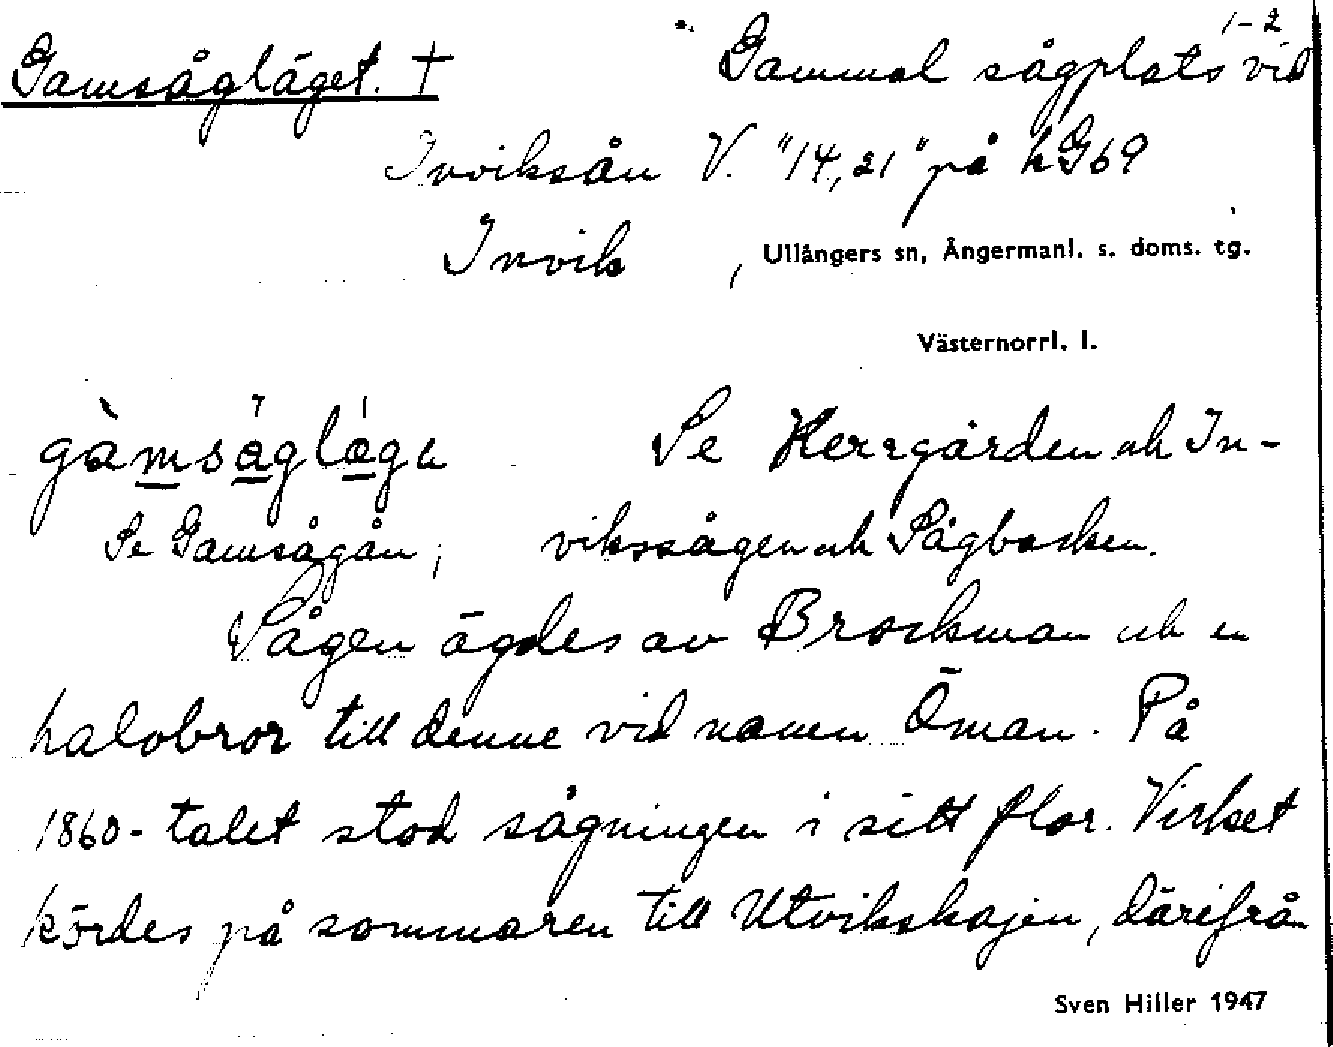 1-2
Gamsågläget. † Gammal sågplats vid
Inviksån V. "14,21" på hG69
Invik , Ullångers sn, Ångermanl. s. doms. tg.
Västernorrl. l.
gàmsågläga Se Herrgården och In-
Se Gamsågån; vikssågen och Sågbacken.
Sågen ägdes av Brockman och en
halvbror till denne vid namn Öman. På
1860-talet stod sågningen i sitt flor. Virket
kördes på sommaren till Utvikskajen, därifrån
Sven Hiller 1947